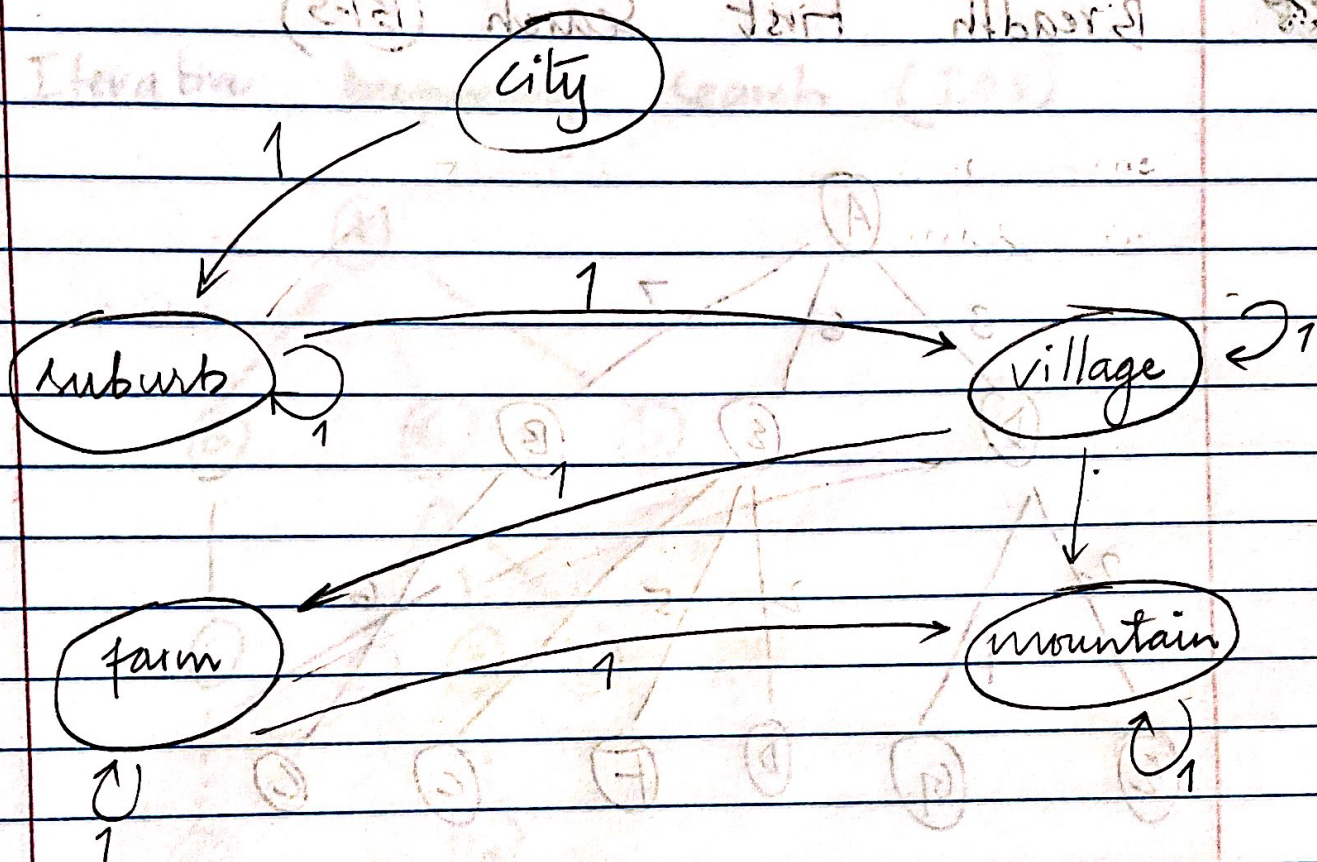 city
1
1
suburb
1
village
1
1
farm
1
mountain
1
1